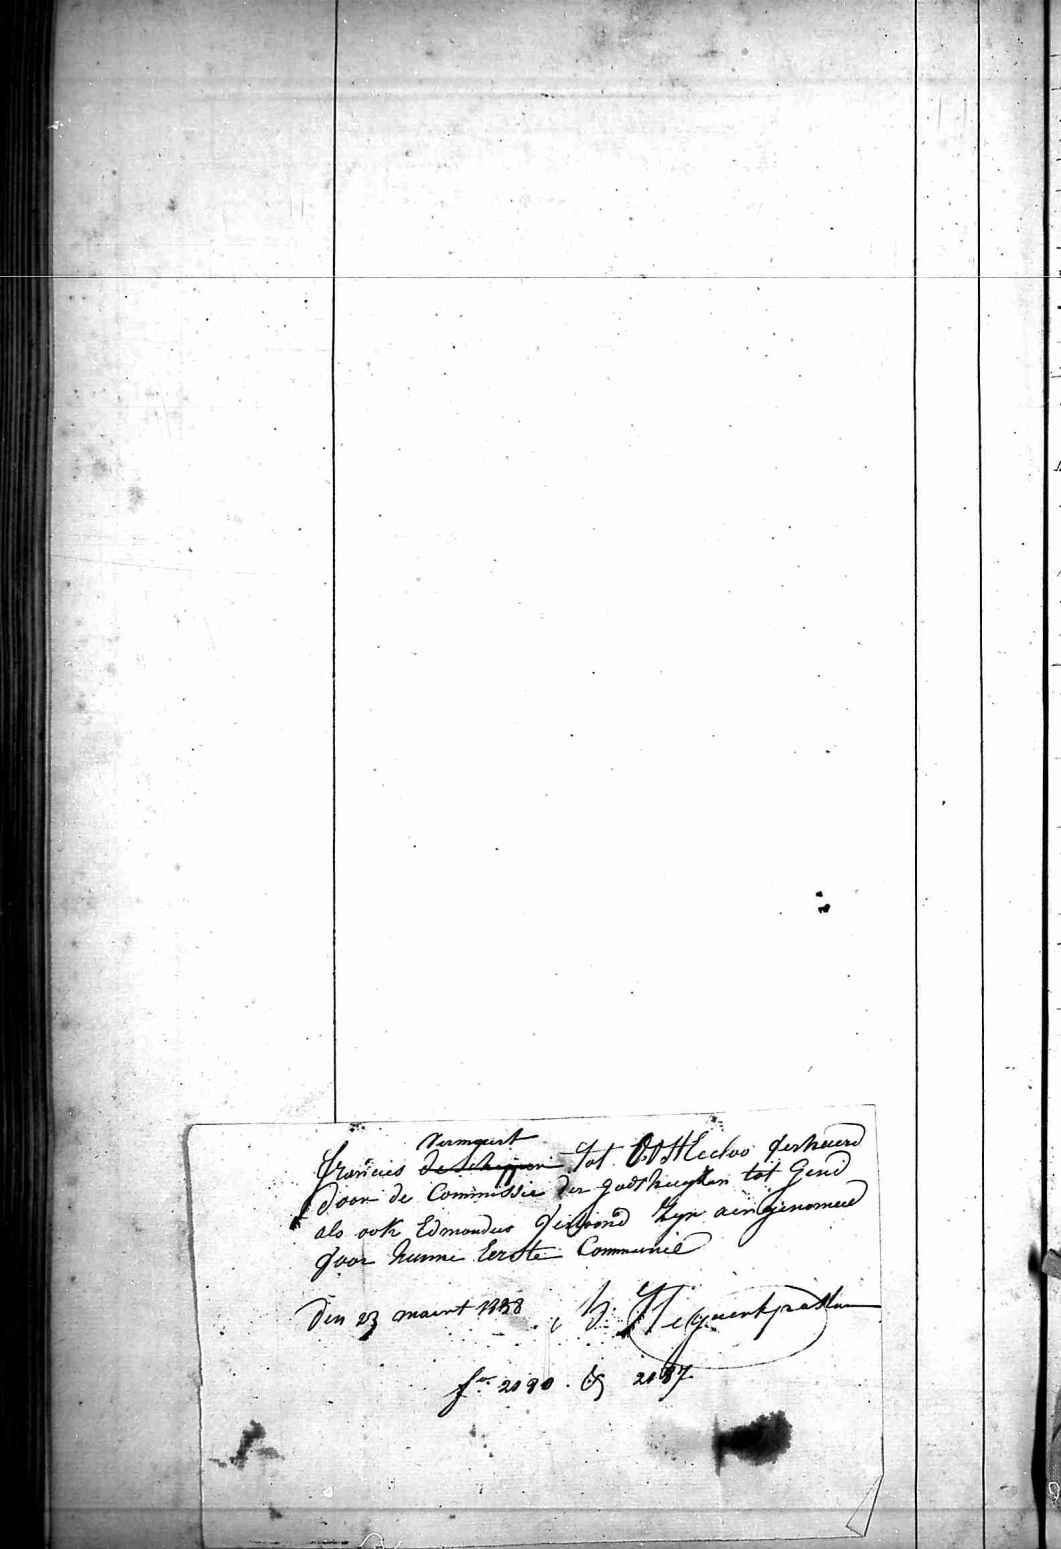 Vermeert
francies de schepper tot Oost Eecloo verhuerd
door de Commissie der godshuyzen tot Gend
als ook Edmondus Vermond Zyn aengenomen
voor hunne Eerste Communie
Den 23 maert 1838
fo 2090 . & 2087